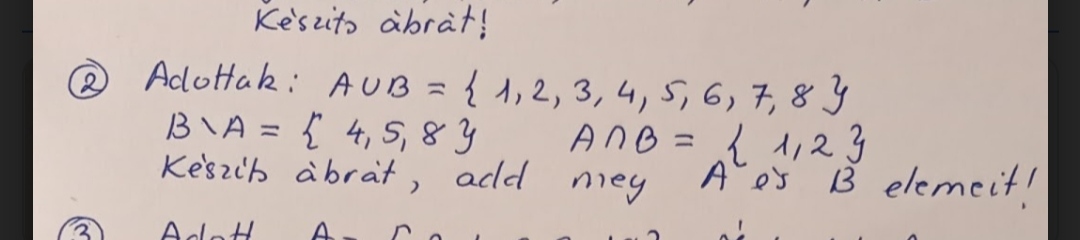 Készíts ábrát!
② Adottak: A∪B = { 1, 2, 3, 4, 5, 6, 7, 8 }
B\A = { 4, 5, 8 } A∩B = { 1, 2 }
Készíts ábrát, add meg A és B elemeit!
③ Adott A =